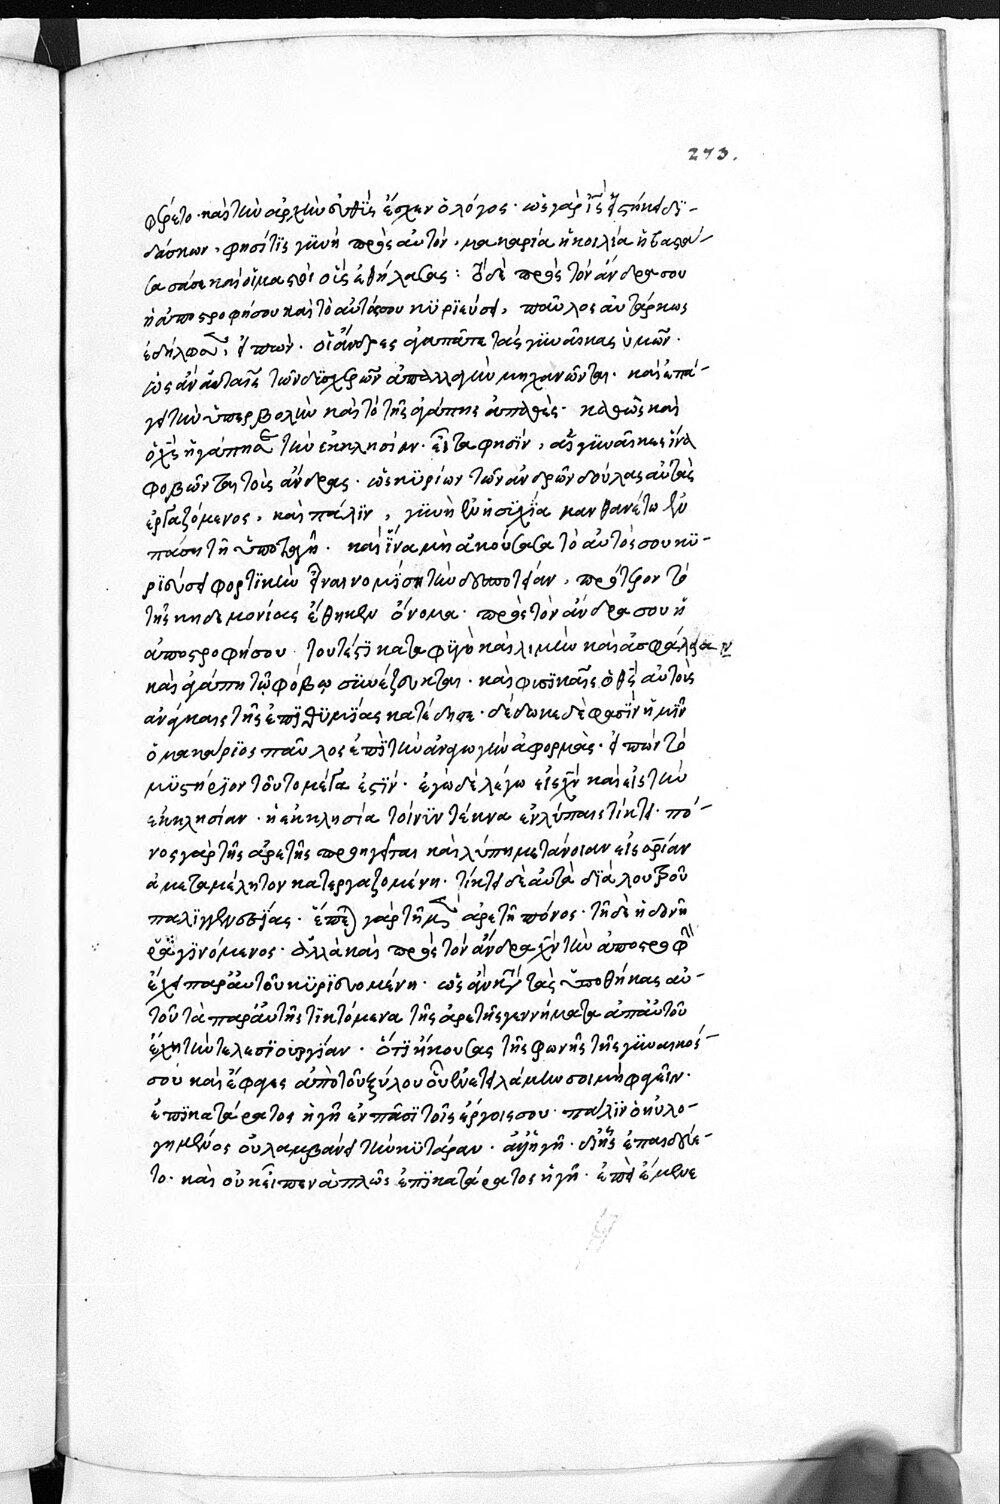 273.
φέρετο· καὶ τὴν ἀρχὴν εὐθὺς ἔσχεν ὁ λόγος· ὡς γὰρ ἰς εἱστήκει δι-
δάσκων, φησί τις γυνὴ πρὸς αὐτόν, μακαρία ἡ κοιλία ἡ βαστά-
σασά σε καὶ οἱ μαστοὶ οὓς ἐθήλασας: ὁ δὲ πρὸς τὸν ἄνδρα σου
ἡ ἀποστροφή σου καὶ τὸ αὐτός σου κυριεύσει, παῦλος αὐτάρκως
ἐδήλωσεν, εἰπών· οἱ ἄνδρες ἀγαπᾶτε τὰς γυναῖκας ὑμῶν·
ὡς ἂν αὐταῖς τῶν δυσχερῶν ἀπαλλαγὴν μηχανῶνται· καὶ ἐπά-
γει τὴν ὑπερβολὴν καὶ τὸ τῆς ἀγάπης ἀπαθές· καθὼς καὶ
ὁ χς ἠγάπησε τὴν ἐκκλησίαν· εἶτα φησίν, αἱ γυναῖκες ἵνα
φοβῶνται τοὺς ἄνδρας· ὡς κυρίων τῶν ἀνδρῶν δούλας αὐτὰς
ἐργαζόμενος, καὶ πάλιν, γυνὴ ἐν ἡσυχία μανθανέτω ἐν
πάση τῆ ὑποταγῆ· καὶ ἵνα μὴ ἀκούσασα τὸ αὐτός σου κυ-
ριεύσει φορτικὴν εἶναι νομίση τὴν δεσποτείαν, πρότερον τὸ
τῆς κηδεμονίας ἔθηκεν ὄνομα· πρὸς τὸν ἄνδρα σου ἡ
ἀποστροφή σου τουτέστι καταφυγὸ καὶ λιμὴν καὶ ἀσφάλεια
καὶ ἀγάπη τῶ φόβω συνέζευκται· καὶ φυσικαῖς ὁ θς αὐτοὺς
ἀνάγκαις τῆς ἐπιθυμίας κατέδησε· δέδωκε δὲ φασὶν ἡμῖν
ὁ μακάριος παῦλος ἐπὶ τὴν ἀναγωγὴν ἀφορμάς· εἰπών τὸ
μυστήριον τοῦτο μέγα ἐστίν· ἐγὼ δὲ λέγω εἰς χν καὶ εἰς τὴν
ἐκκλησίαν· ἡ ἐκκλησία τοίνυν τέκνα ἐν λύπαις τίκτει· πό-
νος γὰρ τῆς ἀρετῆς προηγεῖται καὶ λύπη μετάνοιαν εἰς σρίαν
ἀμεταμέλητον κατεργαζομένη· τίκτει δὲ αὐτὰ διὰ λουτροῦ
παλιγγενεσίας· ἕπεται γὰρ τῆ μὲν ἀρετῆ πόνος· τῆ δὲ ἡδονῆ
γινόμενος· ἀλλὰ καὶ πρὸς τὸν ἄνδρα χν τὴν ἀποστροφὴν
ἔχει παρ' αὐτοῦ κυριευομένη· ὡς τὰς ὑποθήκας αὐ-
τοῦ τὰ παρ' αὐτῆς τικτόμενα τῆς ἀρετῆς γεννήματα ἀπ' αὐτοῦ
ἔχη τὴν τελεσιουργίαν· ὅτι ἤκουσας τῆς φωνῆς τῆς γυναικός
σου καὶ ἔφαγες ἀπὸ τοῦ ξύλου οὗ ἐνετειλάμην σοι μὴ φαγεῖν·
ἐπικατάρατος ἡ γῆ ἐν πᾶσι τοῖς ἔργοις σου· πάλιν ὁ ηὐλο-
γημένος οὐ λαμβάνει τὴν κατάραν· ἀλλ' ἡ γῆ· δι' ἧς ἐπαιδεύε-
το· καὶ οὐκ εἶπεν ἁπλῶς ἐπικατάρατος ἡ γῆ· ἐπεὶ ἔμενε